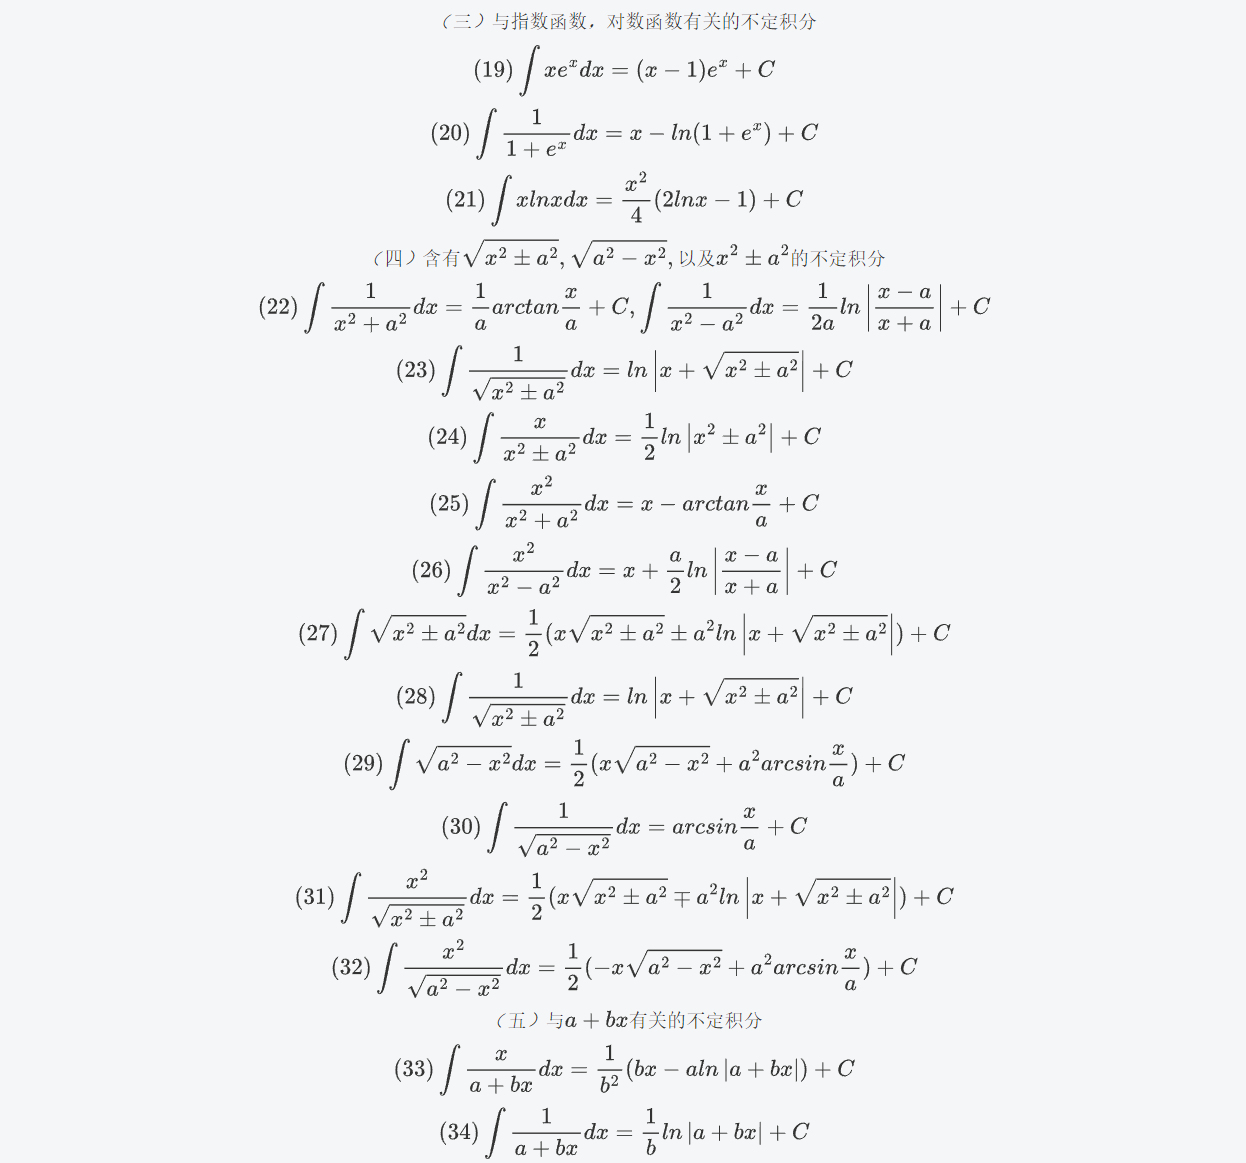 （三）与指数函数，对数函数有关的不定积分
(19) ∫ xe^x dx = (x − 1)e^x + C
(20) ∫ \frac{1}{1 + e^x} dx = x − ln(1 + e^x) + C
(21) ∫ xlnxdx = \frac{x^2}{4}(2lnx − 1) + C
（四）含有\sqrt{x^2 ± a^2}, \sqrt{a^2 − x^2}, 以及x^2 ± a^2的不定积分
(22) ∫ \frac{1}{x^2 + a^2} dx = \frac{1}{a} arctan\frac{x}{a} + C, ∫ \frac{1}{x^2 − a^2} dx = \frac{1}{2a} ln|\frac{x − a}{x + a}| + C
(23) ∫ \frac{1}{\sqrt{x^2 ± a^2}} dx = ln|x + \sqrt{x^2 ± a^2}| + C
(24) ∫ \frac{x}{x^2 ± a^2} dx = \frac{1}{2} ln|x^2 ± a^2| + C
(25) ∫ \frac{x^2}{x^2 + a^2} dx = x − arctan\frac{x}{a} + C
(26) ∫ \frac{x^2}{x^2 − a^2} dx = x + \frac{a}{2} ln|\frac{x − a}{x + a}| + C
(27) ∫ \sqrt{x^2 ± a^2} dx = \frac{1}{2}(x\sqrt{x^2 ± a^2} ± a^2 ln|x + \sqrt{x^2 ± a^2}|) + C
(28) ∫ \frac{1}{\sqrt{x^2 ± a^2}} dx = ln|x + \sqrt{x^2 ± a^2}| + C
(29) ∫ \sqrt{a^2 − x^2} dx = \frac{1}{2}(x\sqrt{a^2 − x^2} + a^2 arcsin\frac{x}{a}) + C
(30) ∫ \frac{1}{\sqrt{a^2 − x^2}} dx = arcsin\frac{x}{a} + C
(31) ∫ \frac{x^2}{\sqrt{x^2 ± a^2}} dx = \frac{1}{2}(x\sqrt{x^2 ± a^2} ∓ a^2 ln|x + \sqrt{x^2 ± a^2}|) + C
(32) ∫ \frac{x^2}{\sqrt{a^2 − x^2}} dx = \frac{1}{2}(−x\sqrt{a^2 − x^2} + a^2 arcsin\frac{x}{a}) + C
（五）与a + bx有关的不定积分
(33) ∫ \frac{x}{a + bx} dx = \frac{1}{b^2}(bx − aln|a + bx|) + C
(34) ∫ \frac{1}{a + bx} dx = \frac{1}{b} ln|a + bx| + C